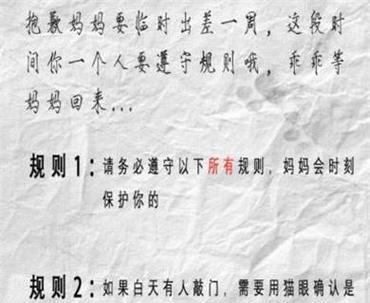 抱歉妈妈要临时出差一周，这段时
间你一个人要遵守规则哦，乖乖等
妈妈回来...
规则1：请务必遵守以下所有规则，妈妈会时刻
保护你的
规则2：如果白天有人敲门，需要用猫眼确认是